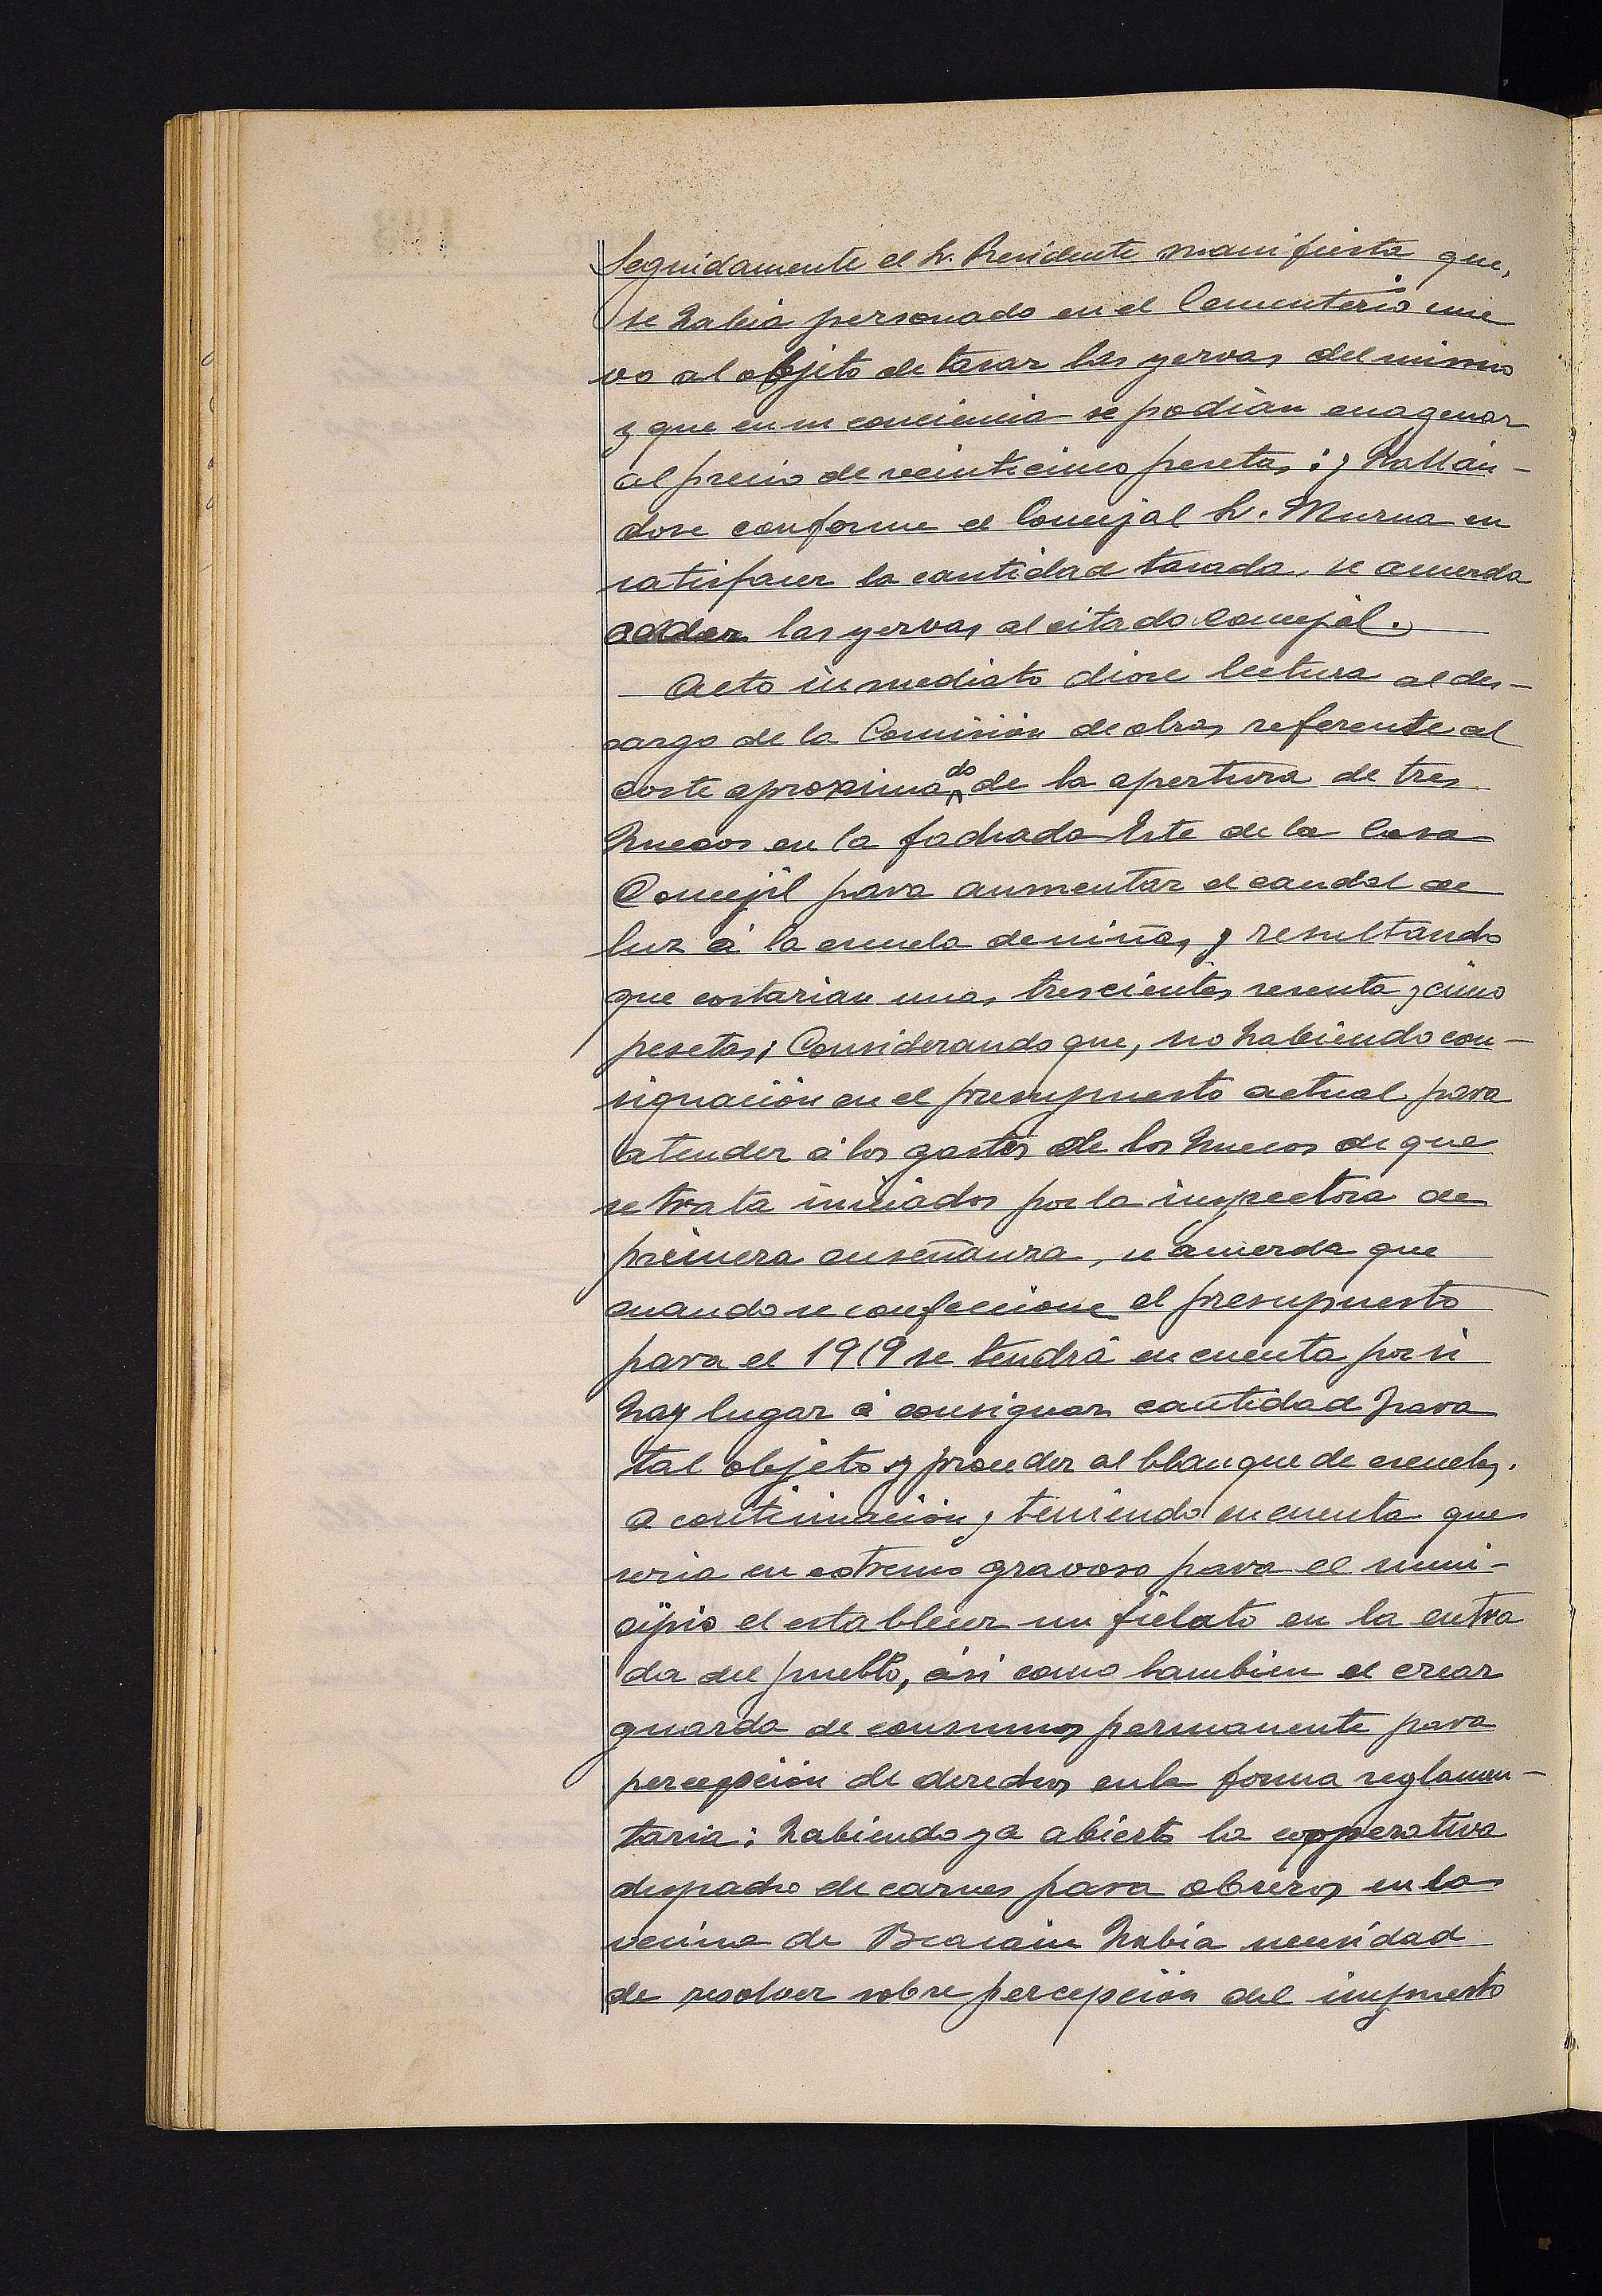 Seguidamente el Sr. Presidente manifiesta que,
se habia personado en el Cementerio nue
vo al objeto de tasar las yervas del mismo
y que en su conciencia se podian enagenar
al precio de veinticinco pesetas: y hallán-
dose conforme el Concejal Sr. Murua en
satisfacer la cantidad tasada, se acuerda
ceder las yervas al citado Concejal.
Acto inmediato diose lectura al des-
cargo de la Comisión de obras referente al
coste aproximado de la apertura de tres
huecos en la fachada Este de la Casa
Concejil para aumentar el caudal de
luz á la escuela de niñas, y resultando
que costarian unas trescientas sesenta y cinco
pesetas; Considerando que, no habiendo con-
signación en el presupuesto actual para
atender á los gastos de los huecos de que
se trata iniciados por la inspectora de
primera enseñanza, se acuerda que
cuando se confeccione el presupuesto
para el 1919 se tendrá en cuenta por si
hay lugar á consignar cantidad para
tal objeto y proceder al blanqueo de escuelas.
A continuación y teniendo en cuenta que
seria en estremo gravoso para el muni-
cipio el establecer un fielato en la entra
da del pueblo, así como tambien el crear
guarda de consumos permanente para
percepción de derechos en la forma reglamen-
taria: habiendo ya abierto la cooperativa
despacho de carnes para obreros en la
vecina de Beasain habia necesidad
de resolver sobre percepción del impuesto